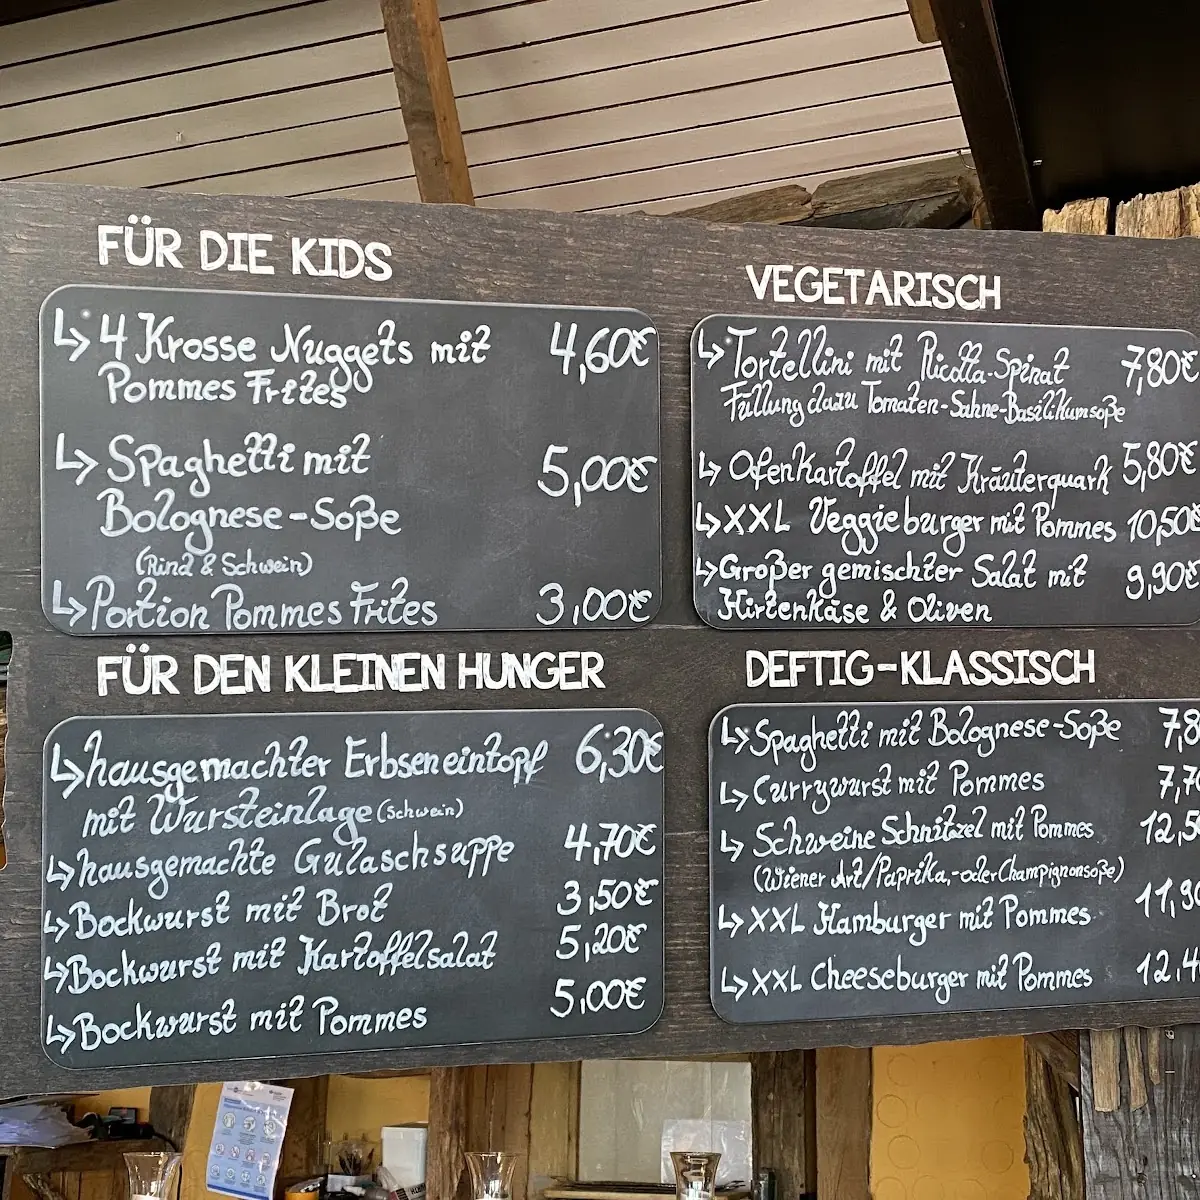 FÜR DIE KIDS
↳ 4 Krosse Nuggets mit 4,60€
Pommes Frites
↳ Spaghetti mit 5,00€
Bolognese-Soße
(Rind & Schwein)
↳ Portion Pommes Frites 3,00€
VEGETARISCH
↳ Tortellini mit Ricotta-Spinat 7,80€
Füllung dazu Tomaten-Sahne-Basilikumsoße
↳ Ofenkartoffel mit Kräuterquark 5,80€
↳ XXL Veggieburger mit Pommes 10,50€
↳ Großer gemischter Salat mit 9,90€
Hirtenkäse & Oliven
FÜR DEN KLEINEN HUNGER
↳ hausgemachter Erbseneintopf 6,30€
mit Wursteinlage (Schwein)
↳ hausgemachte Gulaschsuppe 4,70€
↳ Bockwurst mit Brot 3,50€
↳ Bockwurst mit Kartoffelsalat 5,20€
↳ Bockwurst mit Pommes 5,00€
DEFTIG-KLASSISCH
↳ Spaghetti mit Bolognese-Soße 7,8
↳ Currywurst mit Pommes 7,7
↳ Schweine Schnitzel mit Pommes 12,5
(Wiener Art/Paprika,-oder Champignonsoße)
↳ XXL Hamburger mit Pommes 11,9
↳ XXL Cheeseburger mit Pommes 12,4